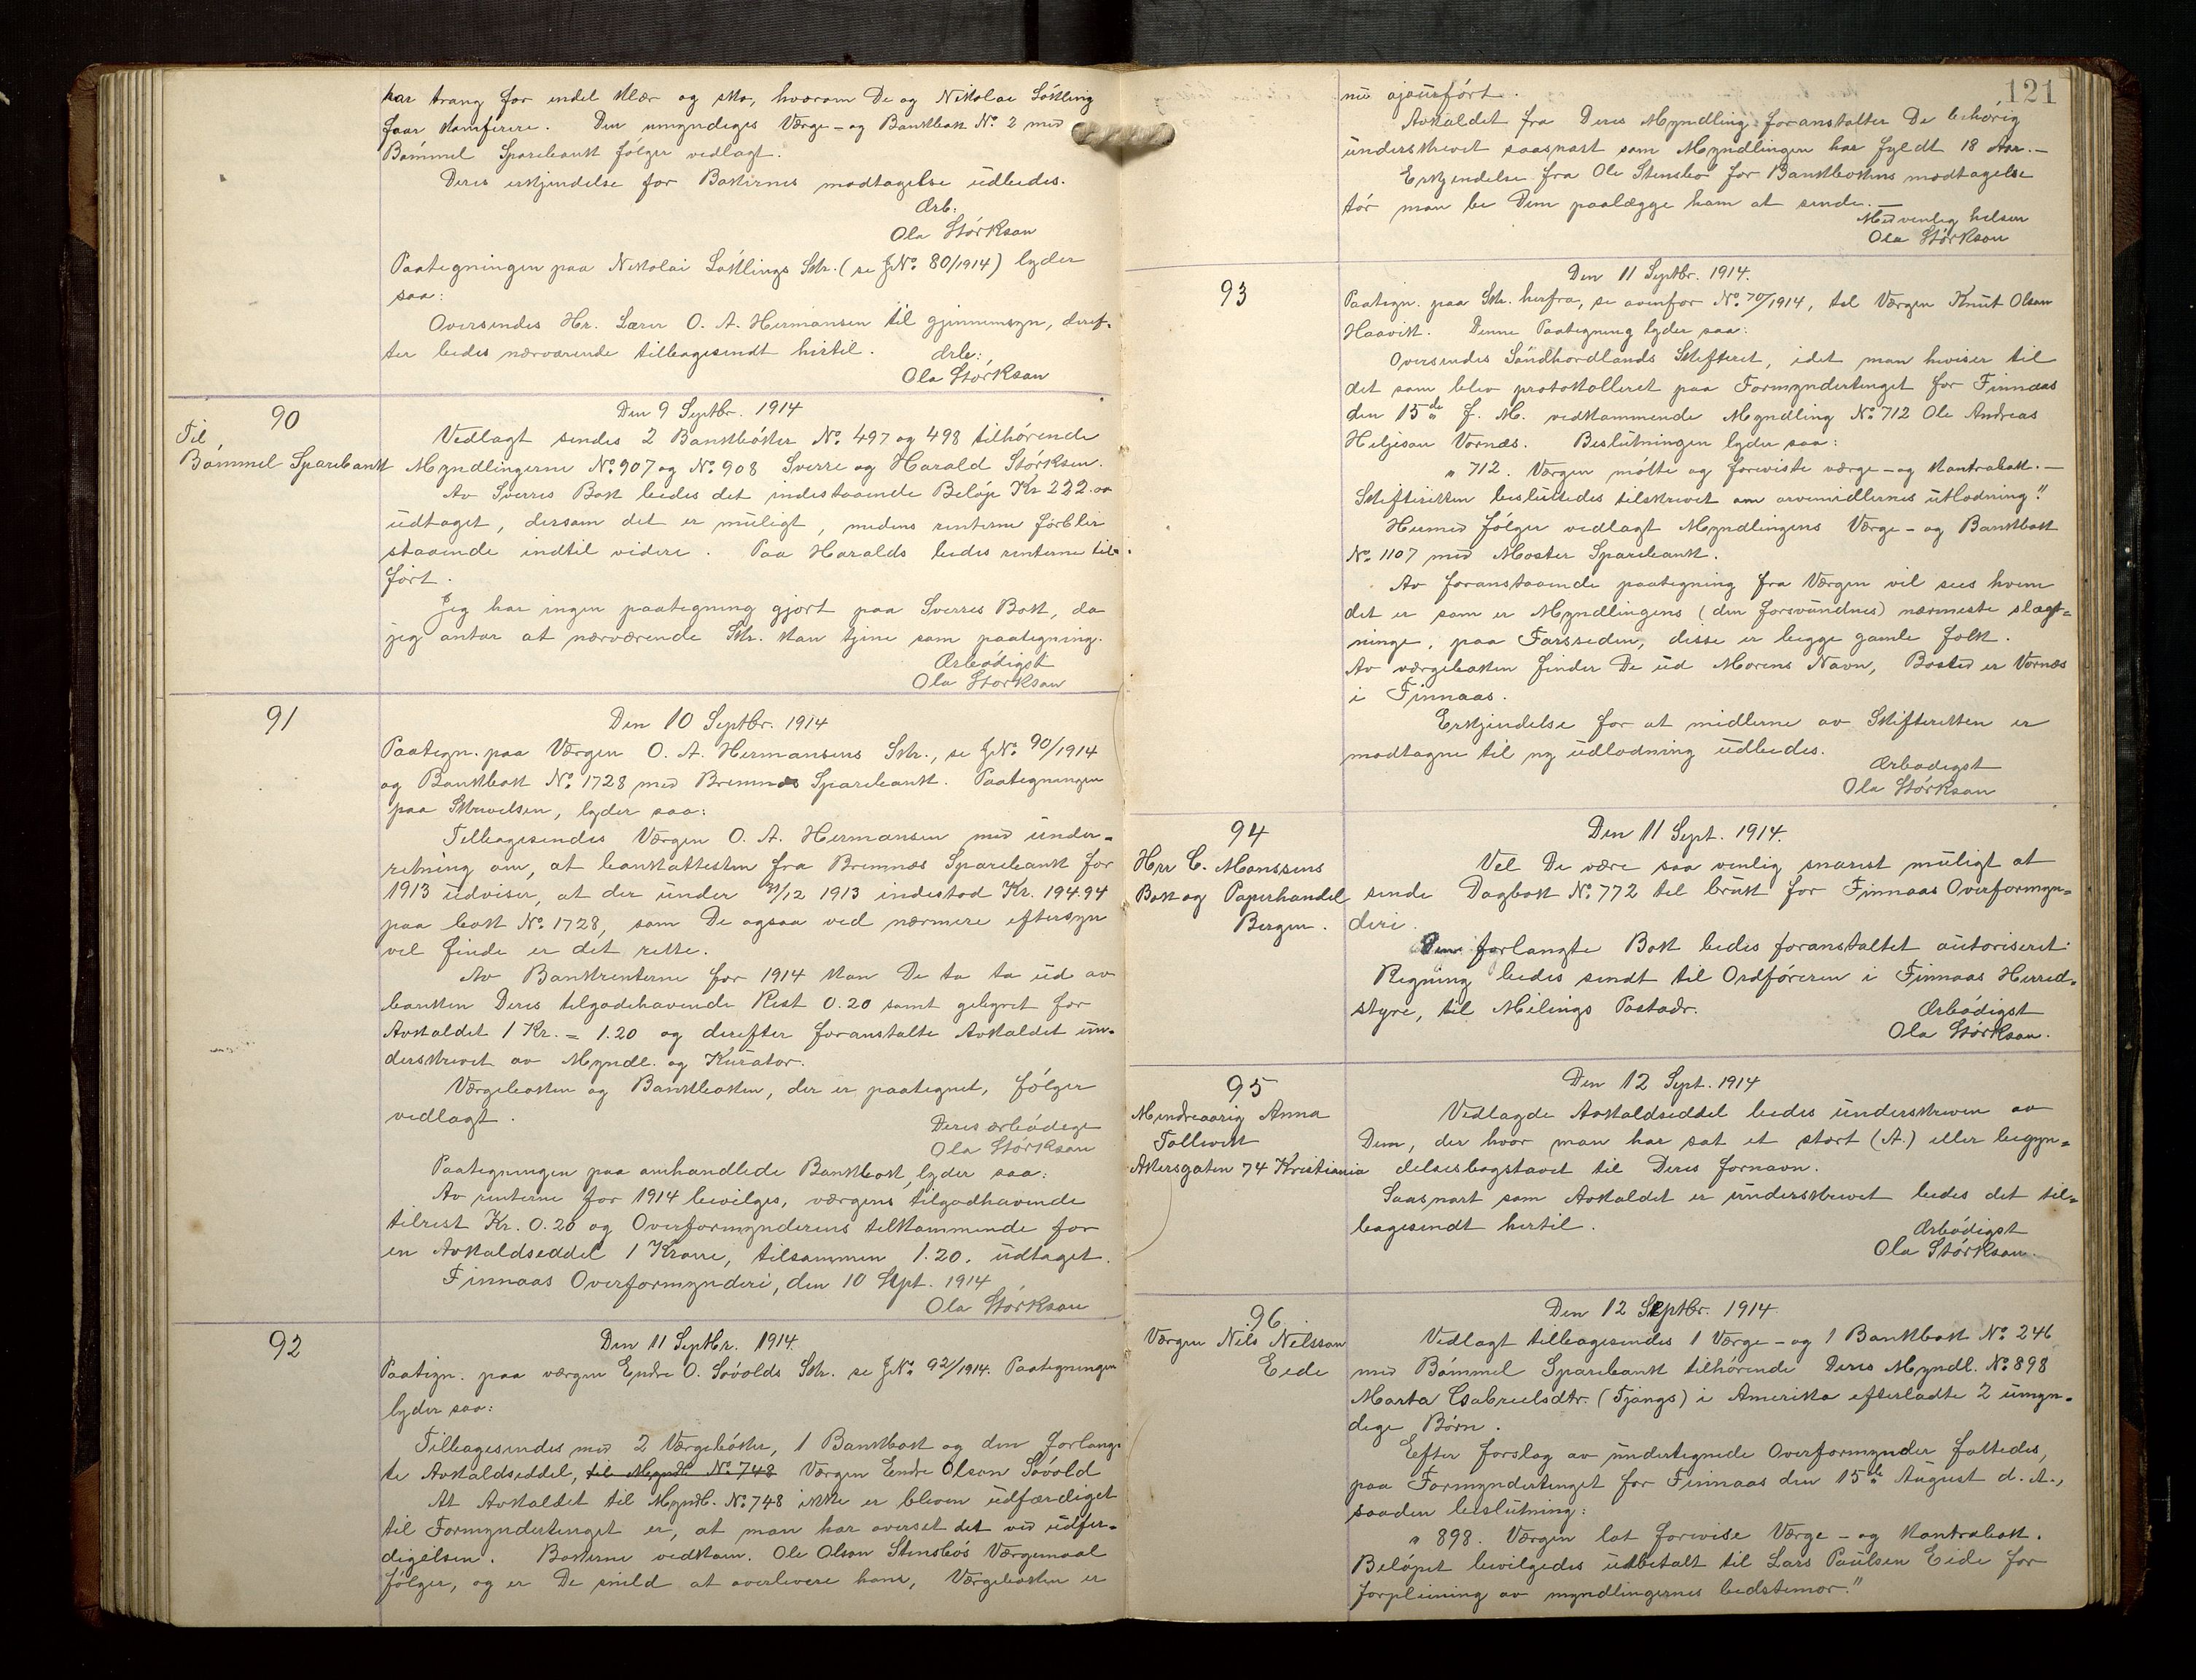 har trang for endel klær og sko, hvorom De og Nikolai Løkling
faar konferere. Den umyndiges Værge- og Bankbok No. 2 med
Bømmel Sparebank følger vedlagt.
Deres erkjendelse for Bøkernes modtagelse udbedes.
Ærb:
Ola Størkson
Paategningen paa Nikolai Løklings Skr. (se J.No. 80/1914) lyder
saa:
Oversendes Hr. Lærer O. A. Hermansen til gjennemsyn, deref-
ter bedes nærværende tilbagesendt hertil.
ærb:
Ola Størkson
90
Til
Bømmel Sparebank
Den 9 Septbr. 1914
Vedlagt sendes 2 Bankbøker No. 497 og 498 tilhørende
Myndlingerne No. 907 og No. 908 Sverre og Harald Størksen.
Av Sverres Bok bedes det indestaaende Beløp Kr 222.00
udtaget, dersom det er muligt, medens renterne forblir
staaende indtil videre. Paa Haralds bedes renterne til-
ført.
Jeg har ingen paategning gjort paa Sverres Bok, da
jeg antar at nærværende Skr. kan tjene som paategning.
Ærbødigst
Ola Størkson
91
Den 10 Septbr. 1914
Paategn. paa Værgen O. A. Hermansens Skr., se J.No. 90/1914
og Bankbok No. 1728 med Bremnæs Sparebank. Paategningen
paa Skrivelsen, lyder saa:
Tilbagesendes Værgen O. A. Hermansen med under-
retning om, at bankattesten fra Bremnæs Sparebank for
1913 udviser, at der under 31/12 1913 indestod Kr. 194.94
paa bok No. 1728, som De ogsaa ved nærmere eftersyn
vil finde er det rette.
Av Bankrenterne for 1914 kan De ta ta ud av
banken Deres tilgodehavende Rest 0.20 samt gebyret for
Avkaldet 1 Kr. = 1.20 og derefter foranstalte Avkaldet un-
derskrevet av Myndl. og Kurator.
Værgeboken og Bankboken, der er paategnet, følger
vedlagt.
Deres ærbødige
Ola Størkson
Paategningen paa omhandlede Bankbok, lyder saa:
Av renterne for 1914 bevilges, værgens tilgodhavende
tilrest Kr. 0.20 og Overformynderens tilkommende for
en Avkaldseddel 1 Krone, tilsammen 1.20. udtaget.
Finnaas Overformynderi, den 10 Sept. 1914
Ola Størkson
92
Den 11 Septbr. 1914.
Paategn. paa værgen Endre O. Søvolds Skr. se J.No. 92/1914. Paategningen
lyder saa:
Tilbagesendes med 2 Værgebøker, 1 Bankbok og den forlang-
te Avkaldseddel, til Myndl. No. 748 Værgen Endre Olsen Søvold
At Avkaldet til Myndl. No. 748 ikke er bleven udfærdiget
til Formyndertinget er, at man har overset det ved udfer-
digelsen. Bøkerne vedkom. Ole Olson Stensbøs Værgemaal
følger, og er De snild at overlevere ham, Værgeboken er
121
nu ajourført.
Avkaldet fra Deres Myndling foranstalter De behørig
underskrevet saasnart som Myndlingen har fyldt 18 Aar.-
Erkjendelse fra Ole Stensbø for Bankbokens modtagelse
tør man be Dem paalægge ham at sende.-
Med venlig hilsen
Ola Størkson
93
Den 11 Septbr. 1914.
Paategn. paa Skr. herfra, se ovenfor No. 70/1914, til Værgen Knut Olson
Haavik. Denne Paategning lyder saa:
Oversendes Søndhordlands Skifteret, idet man henviser til
det som blev protokolleret paa Formyndertinget for Finnaas
den 15de f. M. vedkommende Myndling No. 712 Ole Andreas
Heljeson Vornæs. Beslutningen lyder saa:
" 712. Værgen møtte og foreviste værge- og Kontrabok.-
Skifteretten besluttedes tilskrevet om arvemidlernes utlodning."
Hermed følger vedlagt Myndlingens Værge- og Bankbok
No. 1107 med Moster Sparebank.
Av foranstaaende paategning fra Værgen vil sees hvem
det er som er Myndlingens (den forsvundnes) nærmeste slægt-
ninge, paa Farssiden, disse er begge gamle folk.
Av værgeboken finder De ud Morens Navn, Bosted er Vornæs
i Finnaas.
Erkjendelse for at midlerne av Skifteretten er
modtagne til ny udlodning udbedes.
Ærbødigst
Ola Størkson
94
Hrr C. Monssens
Bok og Papirhandel
Bergen.
Den 11 Sept. 1914.
Vil De være saa venlig snarest muligt at
sende Dagbok No. 772 til bruk for Finnaas Overformyn-
deri.
Den forlangte Bok bedes foranstaltet autoriseret
Regning bedes sendt til Ordføreren i Finnaas Herred-
styre, til Mælings Postadr.
Ærbødigst
Ola Størkson.
95
Mindreaarig Anna
Follevik
Akersgaten 74 Kristiania
Den 12 Sept. 1914
Vedlagde Avkaldseddel bedes underskreven av
Dem, der hvor man har sat et stort (A.) eller begyn-
delsesbogstavet til Deres fornavn.
Saasnart som Avkaldet er underskrevet bedes det til-
bagesendt hertil.
Ærbødigst
Ola Størkson.
96
Værgen Nils Nilsson
Eide
Den 12 Septbr. 1914
Vedlagt tilbagesendes 1 Værge- og 1 Bankbok No. 246
med Bømmel Sparebank tilhørende Deres Myndl. No. 898
Marta Gabrielsdtr. (Tjongs) i Amerika efterladte 2 umyn-
dige Børn.
Efter forslag av undertegnede Overformynder fattedes,
paa Formyndertinget for Finnaas den 15de August d. A.,
saaden beslutning:
" 898. Værgen lot forevise Værge- og Kontrabok.
Beløpet bevilgedes utbetalt til Lars Paulsen Eide for
forpleining av myndlingernes bedstemor."